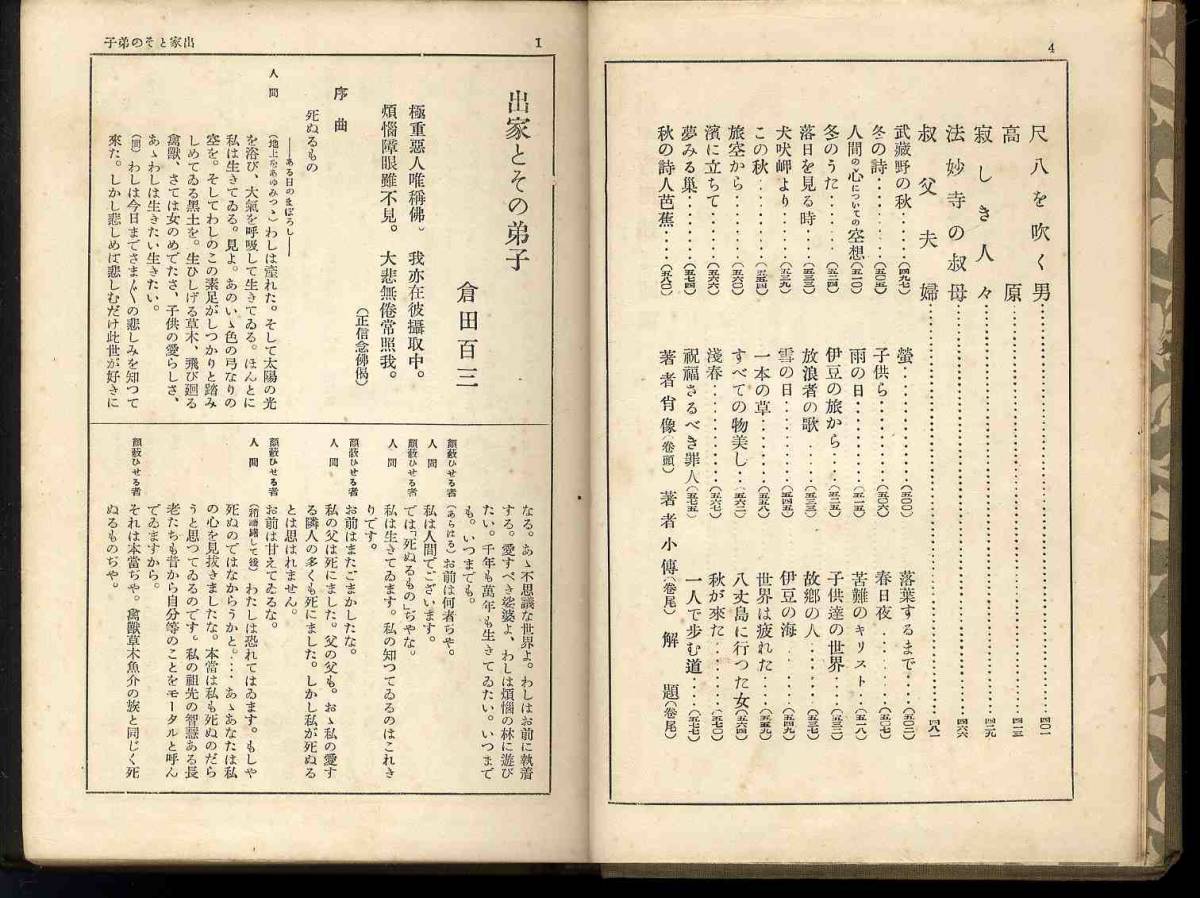 4
尺八を吹く男‥‥‥四〇一
高原‥‥‥四一三
寂しき人々‥‥‥四二九
法妙寺の叔母‥‥‥四六六
叔父夫婦‥‥‥四八一
武藏野の秋‥‥(四九七)
冬の詩‥‥(五〇五)
人間の心についての空想(五一〇)
冬のうた‥‥(五二四)
落日を見る時‥‥(五三三)
犬吠岬より‥‥(五三九)
この秋‥‥(五五四)
旅空から‥‥(五六〇)
濱に立ちて‥‥(五六六)
夢みる巢‥‥(五七四)
秋の詩人芭蕉‥‥(五八〇)
螢‥‥(五〇〇)
子供ら‥‥(五〇六)
雨の日‥‥(五一五)
伊豆の旅から‥‥(五二五)
放浪者の歌‥‥(五三三)
雪の日‥‥(五四五)
一本の草‥‥(五五八)
すべての物美し‥‥(五六二)
淺春‥‥(五六七)
祝福さるべき罪人(五七五)
著者肖像(卷頭)
落葉するまで‥‥(五〇二)
春日夜‥‥(五〇七)
苦難のキリスト‥‥(五一八)
子供達の世界‥‥(五三二)
故鄕の人‥‥(五三七)
伊豆の海‥‥(五四九)
世界は疲れた‥‥(五五九)
八丈島に行つた女(五六四)
秋が來た‥‥(五七〇)
一人で步む道‥‥(五七七)
著者小傳(卷尾)
解題(卷尾)
出家とその弟子
1
出家とその弟子
倉田百三
極重惡人唯稱佛。 我亦在彼攝取中。
煩惱障眼雖不見。 大悲無倦常照我。
(正信念佛偈)
序曲
死ぬるもの
――ある日のまぼろし――
人間
(地上をあゆみつゝ)わしは產れた。そして太陽の光
を浴び、大氣を呼吸して生きてゐる。ほんとに
私は生きてゐる。見よ。あのいゝ色の弓なりの
空を。そしてわしのこの素足がしつかりと踏み
しめてゐる黑土を。生ひしげる草木、飛び廻る
禽獸、さては女のめでたさ、子供の愛らしさ、
あゝわしは生きたい生きたい。
(間)わしは今日までさま〲の悲しみを知つて
來た。しかし悲しめば悲しむだけ此世が好きに
なる。あゝ不思議な世界よ。わしはお前に執着
する。愛すべき娑婆よ、わしは煩惱の林に遊び
たい。千年も萬年も生きてゐたい。いつまで
も。いつまでも。
顏蔽ひせる者
(あらはる)お前は何者ぢや。
人間
私は人間でございます。
顏蔽ひせる者
では「死ぬるもの」ぢやな。
人間
私は生きてゐます。私の知つてゐるのはこれき
りです。
顏蔽ひせる者
お前はまたごまかしたな。
人間
私の父は死にました。父の父も。おゝ私の愛す
る隣人の多くも死にました。しかし私が死ぬる
とは思はれません。
顏蔽ひせる者
お前は甘えてゐるな。
人間
わたしは恐れてはゐます。もしや
死ぬのではなからうかと。‥‥あゝあなたは私
の心を見拔きましたな。本當は私も死ぬのだら
うと思つてゐるのです。私の祖先の智慧ある長
老たちも昔から自分等のことをモータルと呼ん
でゐますから。
顏蔽ひせる者
それは本當ぢや。禽獸草木魚介の族と同じく死
ぬるものぢや。